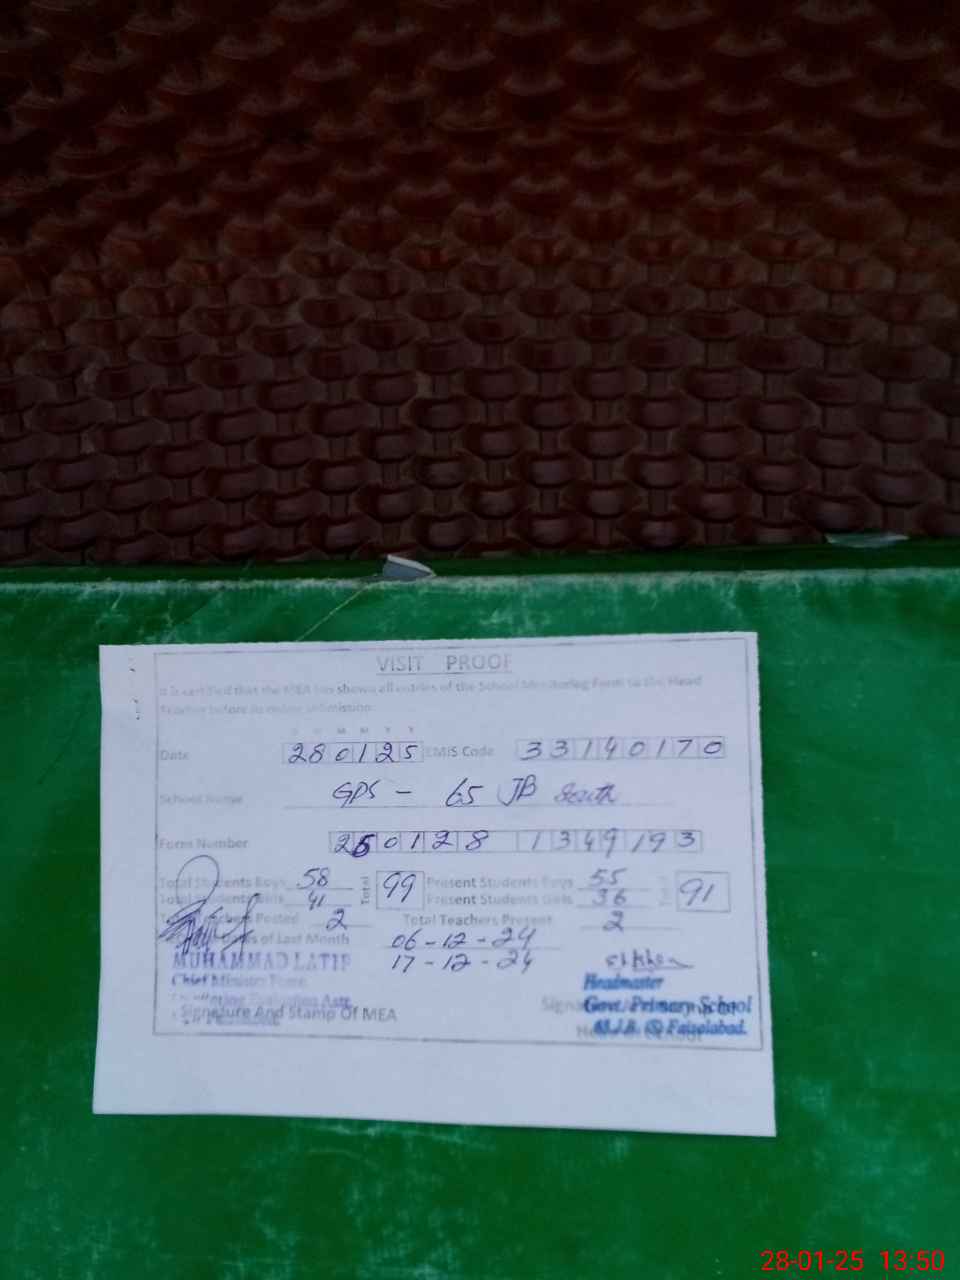 VISIT PROOF
It is certified that the MEA has shown all entries of the School Monitoring Form to the Head
Teacher before its online submission
D D M M Y Y
Date 280125 EMIS Code 33140170
School Name GPS - 65 JB South
Form Number 250128 1349193
Total Students Boys 58 Total 99 Present Students Boys 55 91
Total Students Girls 41 Present Students Girls 36
Total Teachers Posted 2 Total Teachers Present 2
of Last Month 06-12-24
17-12-24
MUHAMMAD LATIF
Chief Minister
Monitoring Evaluation Astt.
Signature And Stamp Of MEA
Headmaster
Govt. Primary School
J.B. Faisalabad.
28-01-25 13:50